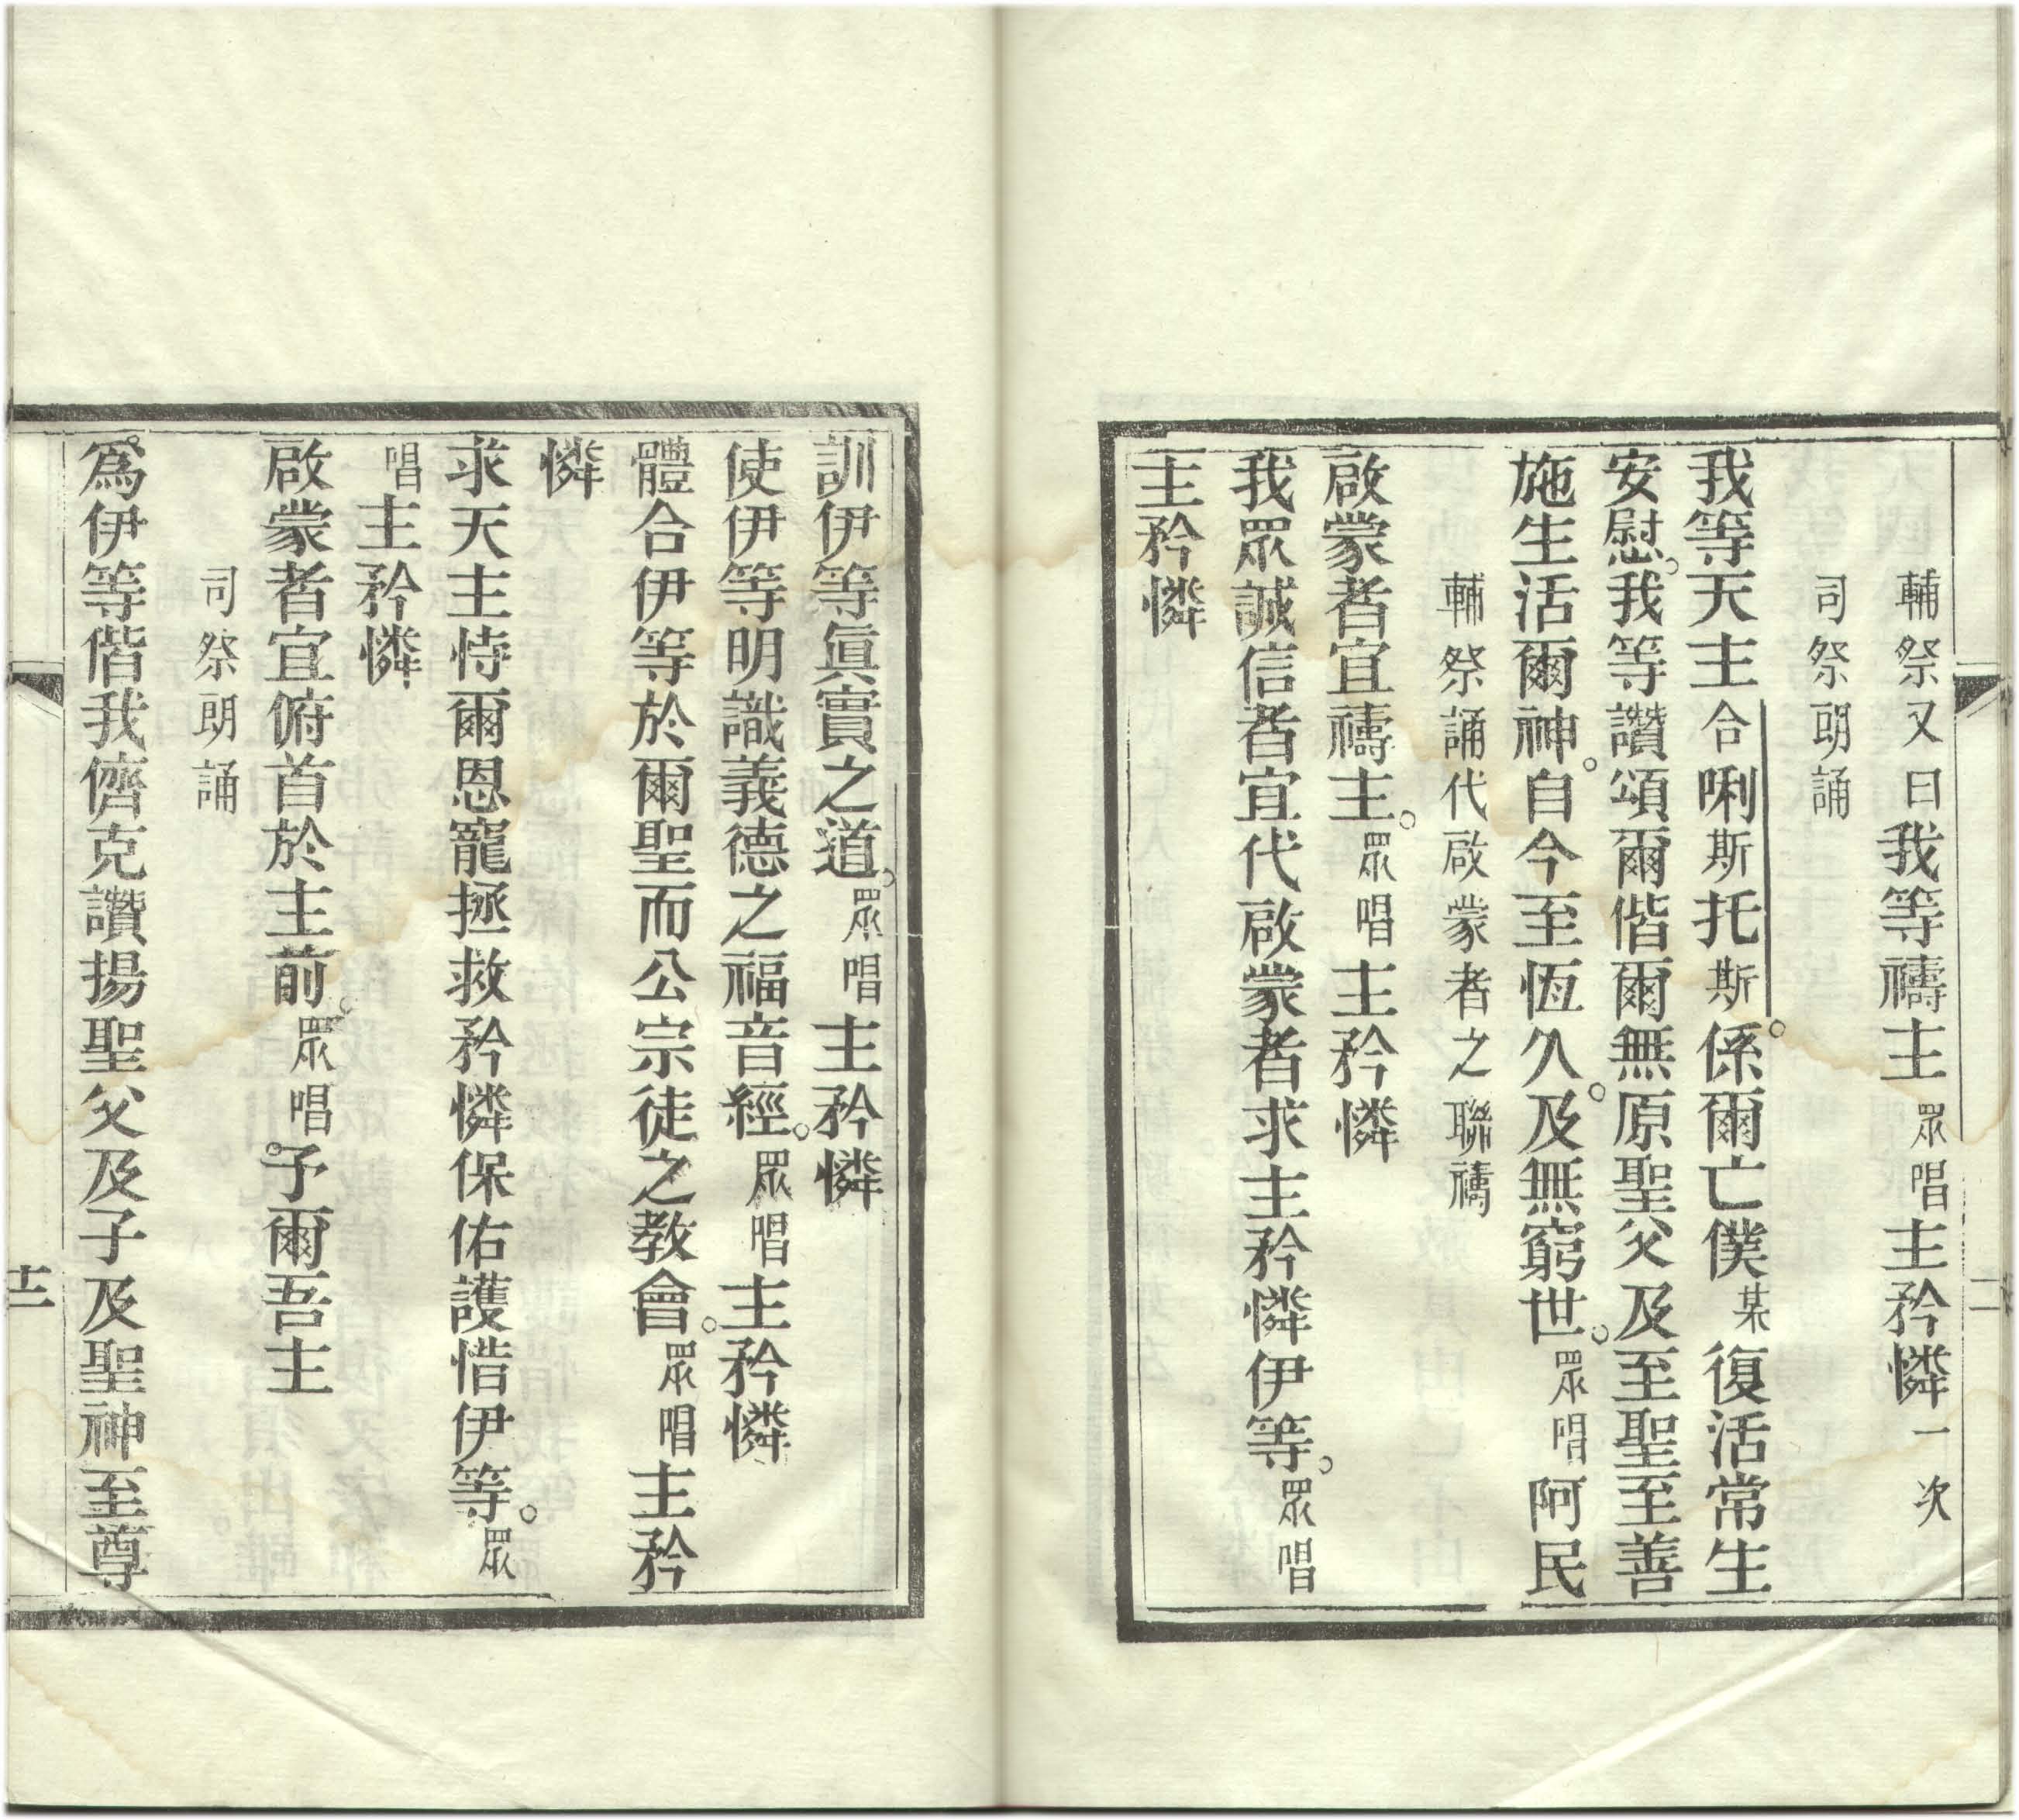 輔祭又曰我等禱主眾唱主矜憐一次
司祭朗誦
我等天主合唎斯托斯。係爾亡僕某復活常生
安慰。我等讚頌爾偕爾無原聖父及至聖至善
施生活爾神。自今至恆久。及無窮世。眾唱阿民
輔祭誦代啟蒙者之聯禱
啟蒙者宜禱主。眾唱主矜憐
我眾誠信者宜代啟蒙者求主矜憐伊等。眾唱
主矜憐
訓伊等眞實之道。眾唱主矜憐
使伊等明識義德之福音經。眾唱主矜憐
體合伊等於爾聖而公宗徒之教會。眾唱主矜
憐
求天主恃爾恩寵拯救矜憐保佑護惜伊等。眾
唱主矜憐
啟蒙者宜俯首於主前。眾唱。予爾吾主
司祭朗誦
爲。伊等偕我儕克讚揚聖父及子及聖神至尊
十二